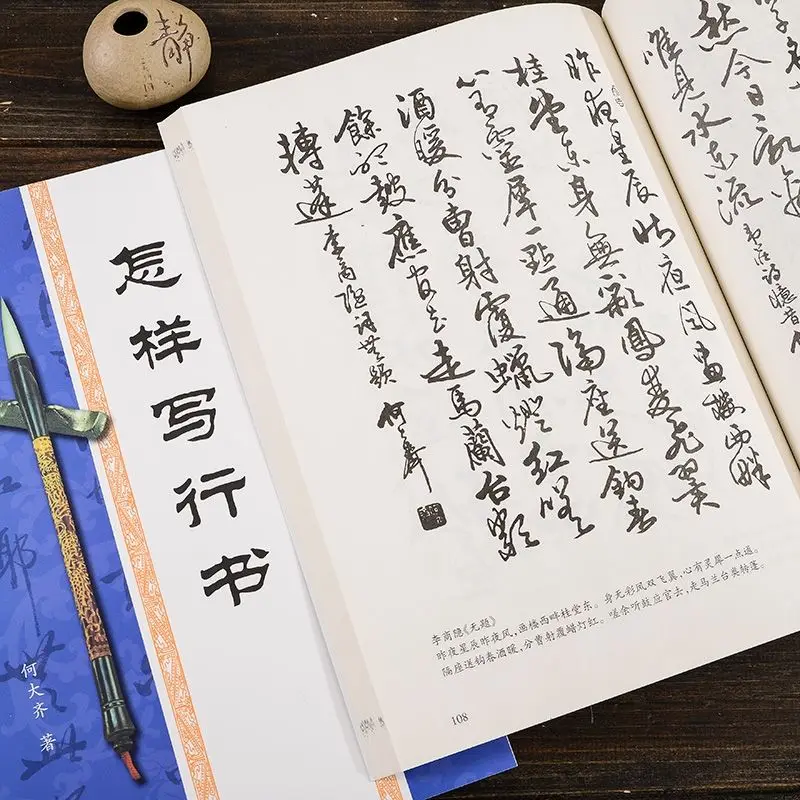 靜
怎样写行书
何大齐 著
昨夜星辰昨夜風畫樓西畔
桂堂东身無彩鳳雙飛翼
心有靈犀一點通隔座送鈎春
酒暖分曹射覆蠟燈紅嗟
餘聽鼓應官去走馬蘭台類
轉蓬 李商隐詞無題 何大齊
李商隐《无题》
昨夜星辰昨夜风，画楼西畔桂堂东。身无彩凤双飞翼，心有灵犀一点通。
隔座送钩春酒暖，分曹射覆蜡灯红。嗟余听鼓应官去，走马兰台类转蓬。
108
然今日
唯見水东流